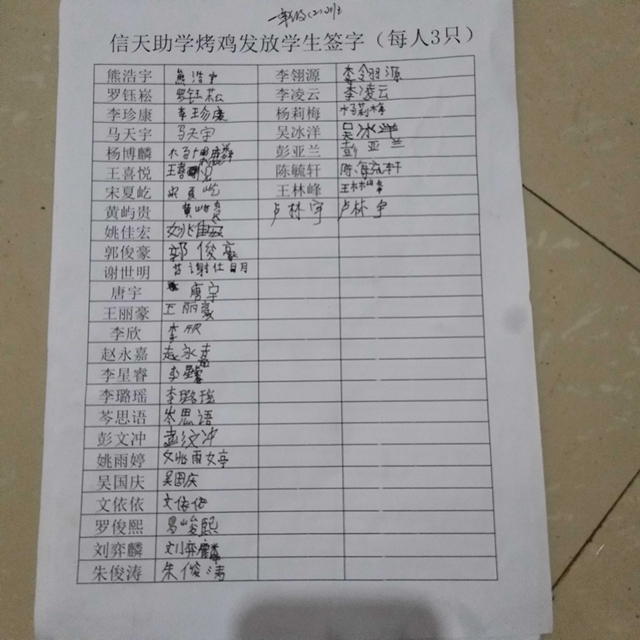 信天助学烤鸡发放学生签字（每人3只）
熊浩宇 熊浩宇 李翎源 李翎源
罗钰崧 罗钰崧 李凌云 李凌云
李珍康 李珍康 杨莉梅 杨莉梅
马天宇 马天宇 吴冰洋 吴冰洋
杨博麟 杨博麟 彭亚兰 彭亚兰
王喜悦 王喜悦 陈毓轩 陈毓轩
宋夏屹 宋夏屹 王林峰 王林峰
黄屿贵 黄屿贵 卢林宇 卢林宇
姚佳宏 姚佳宏
郭俊豪 郭俊豪
谢世明 谢世明
唐宇 唐宇
王丽豪 王丽豪
李欣 李欣
赵永嘉 赵永嘉
李星睿 李
李璐瑶 李璐瑶
岑思语 岑思语
彭文冲 彭文冲
姚雨婷 姚雨婷
吴国庆 吴国庆
文依依 文依依
罗俊熙 罗俊熙
刘弈麟 刘弈麟
朱俊涛 朱俊涛